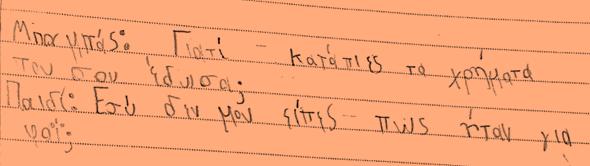 Μπαμπάς: Γιατί - κατάπιες τα χρήματα
που σου έδωσα;
Παιδί: Εσύ δεν μου είπες - πως ήταν για
φαϊ;